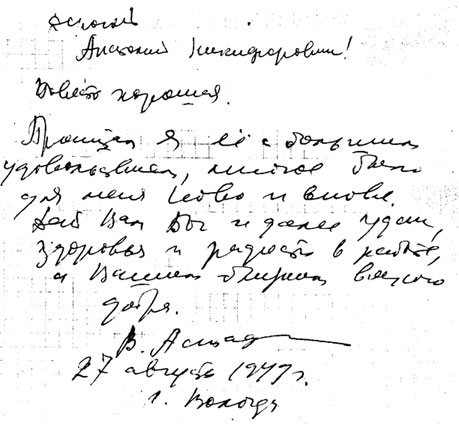 Дорогой
Анатолий Никифорович!
Повесть хорошая.
Прочитал я её с большим
удовольствием, многое было
для меня ново и внове.
Дай Вам Бог и далее удач,
здоровья и радости в работе,
а Вашим близким всякого
добра.
В. Астаф
27 августа 1977 г.
г. Вологда